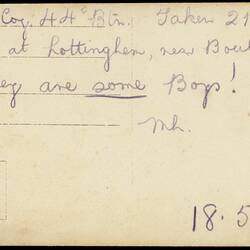 Coy, 44th Btn: Taken 21
at Lottinghem, near Boul
ey are some Boys!
Mh.
18.5